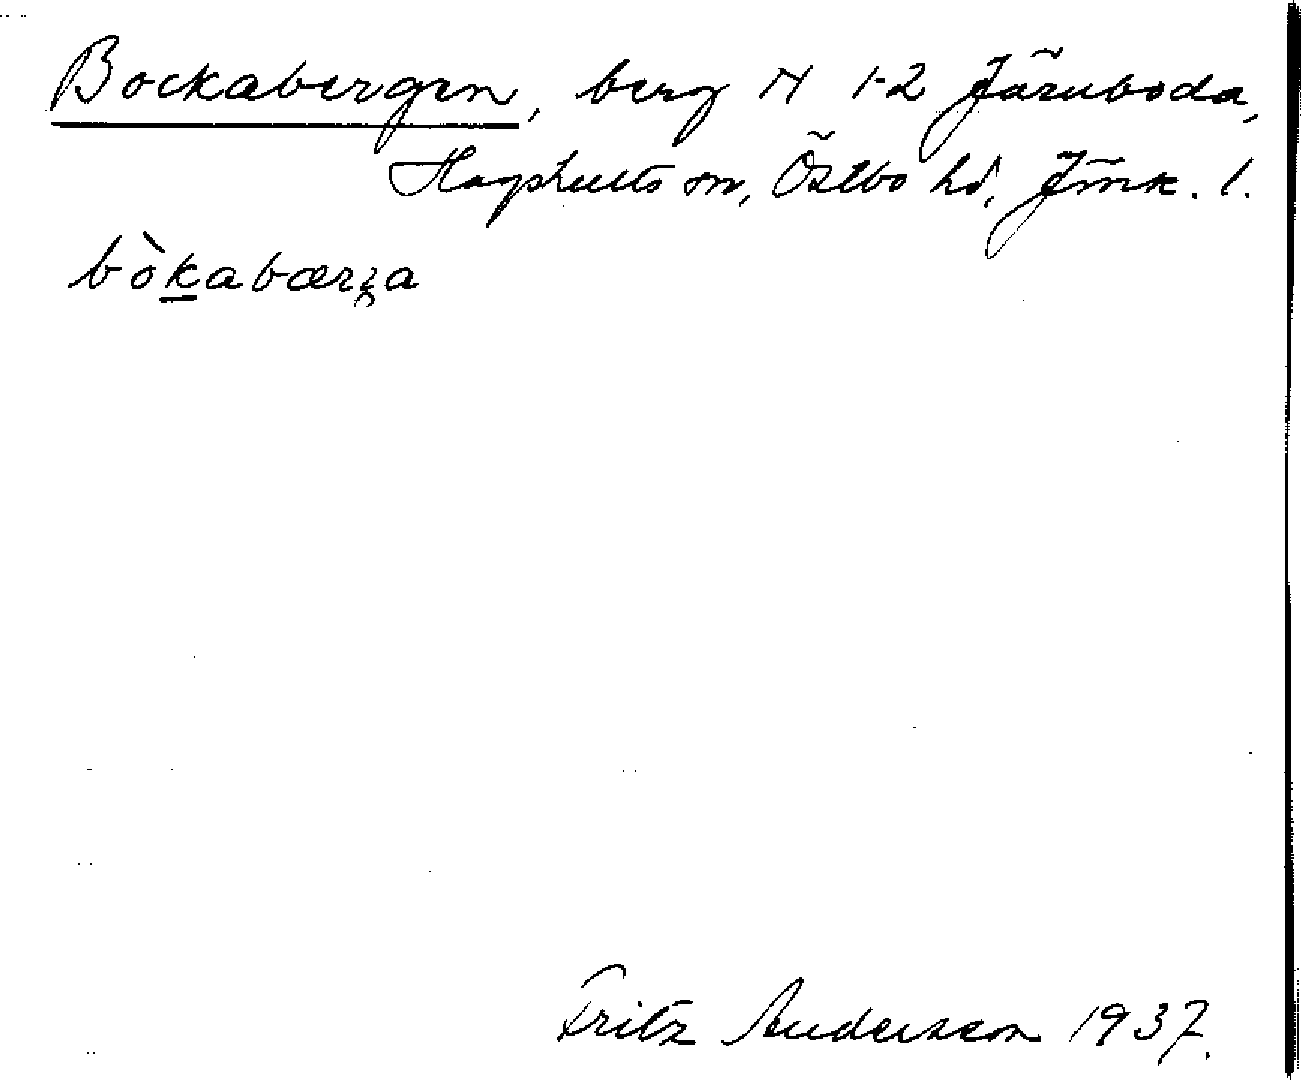 Bockabergen, berg N 1-2 Järnboda,
Hagshults sn, Östbo hd, Jönk. l.
bòkabærʒa
Fritz Andersson 1937.